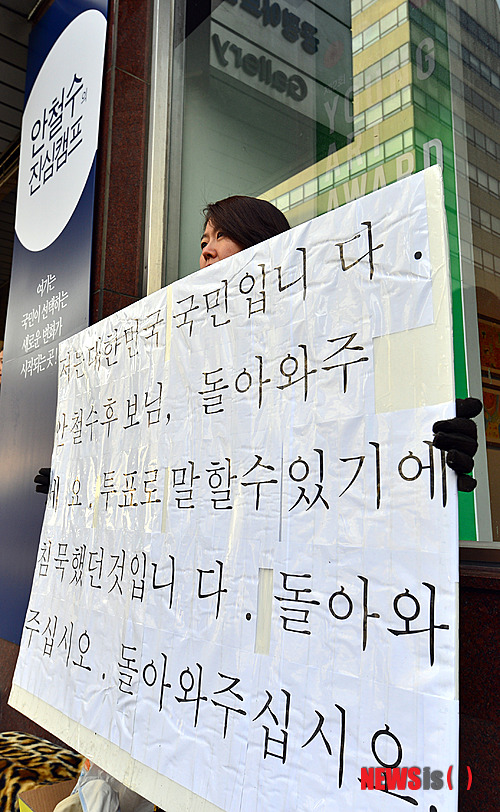 안철수의
진심캠프
여기는
국민이 선택하는
새로운 변화가
시작되는 곳,
Gallery
YOUNG
ART
AWARD
저는대한민국 국민입니다.
안철수후보님, 돌아와주
세요. 투표로 말할수있기에
침묵했던것입니다. 돌아와
주십시오. 돌아와주십시오
NEWSis( )